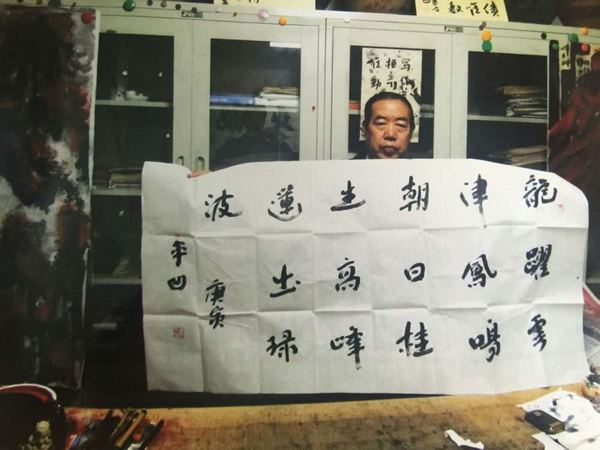 龍躍雲
津鳳鳴
朝日桂
生高峰
蓮出绿
波 庚寅
平凹